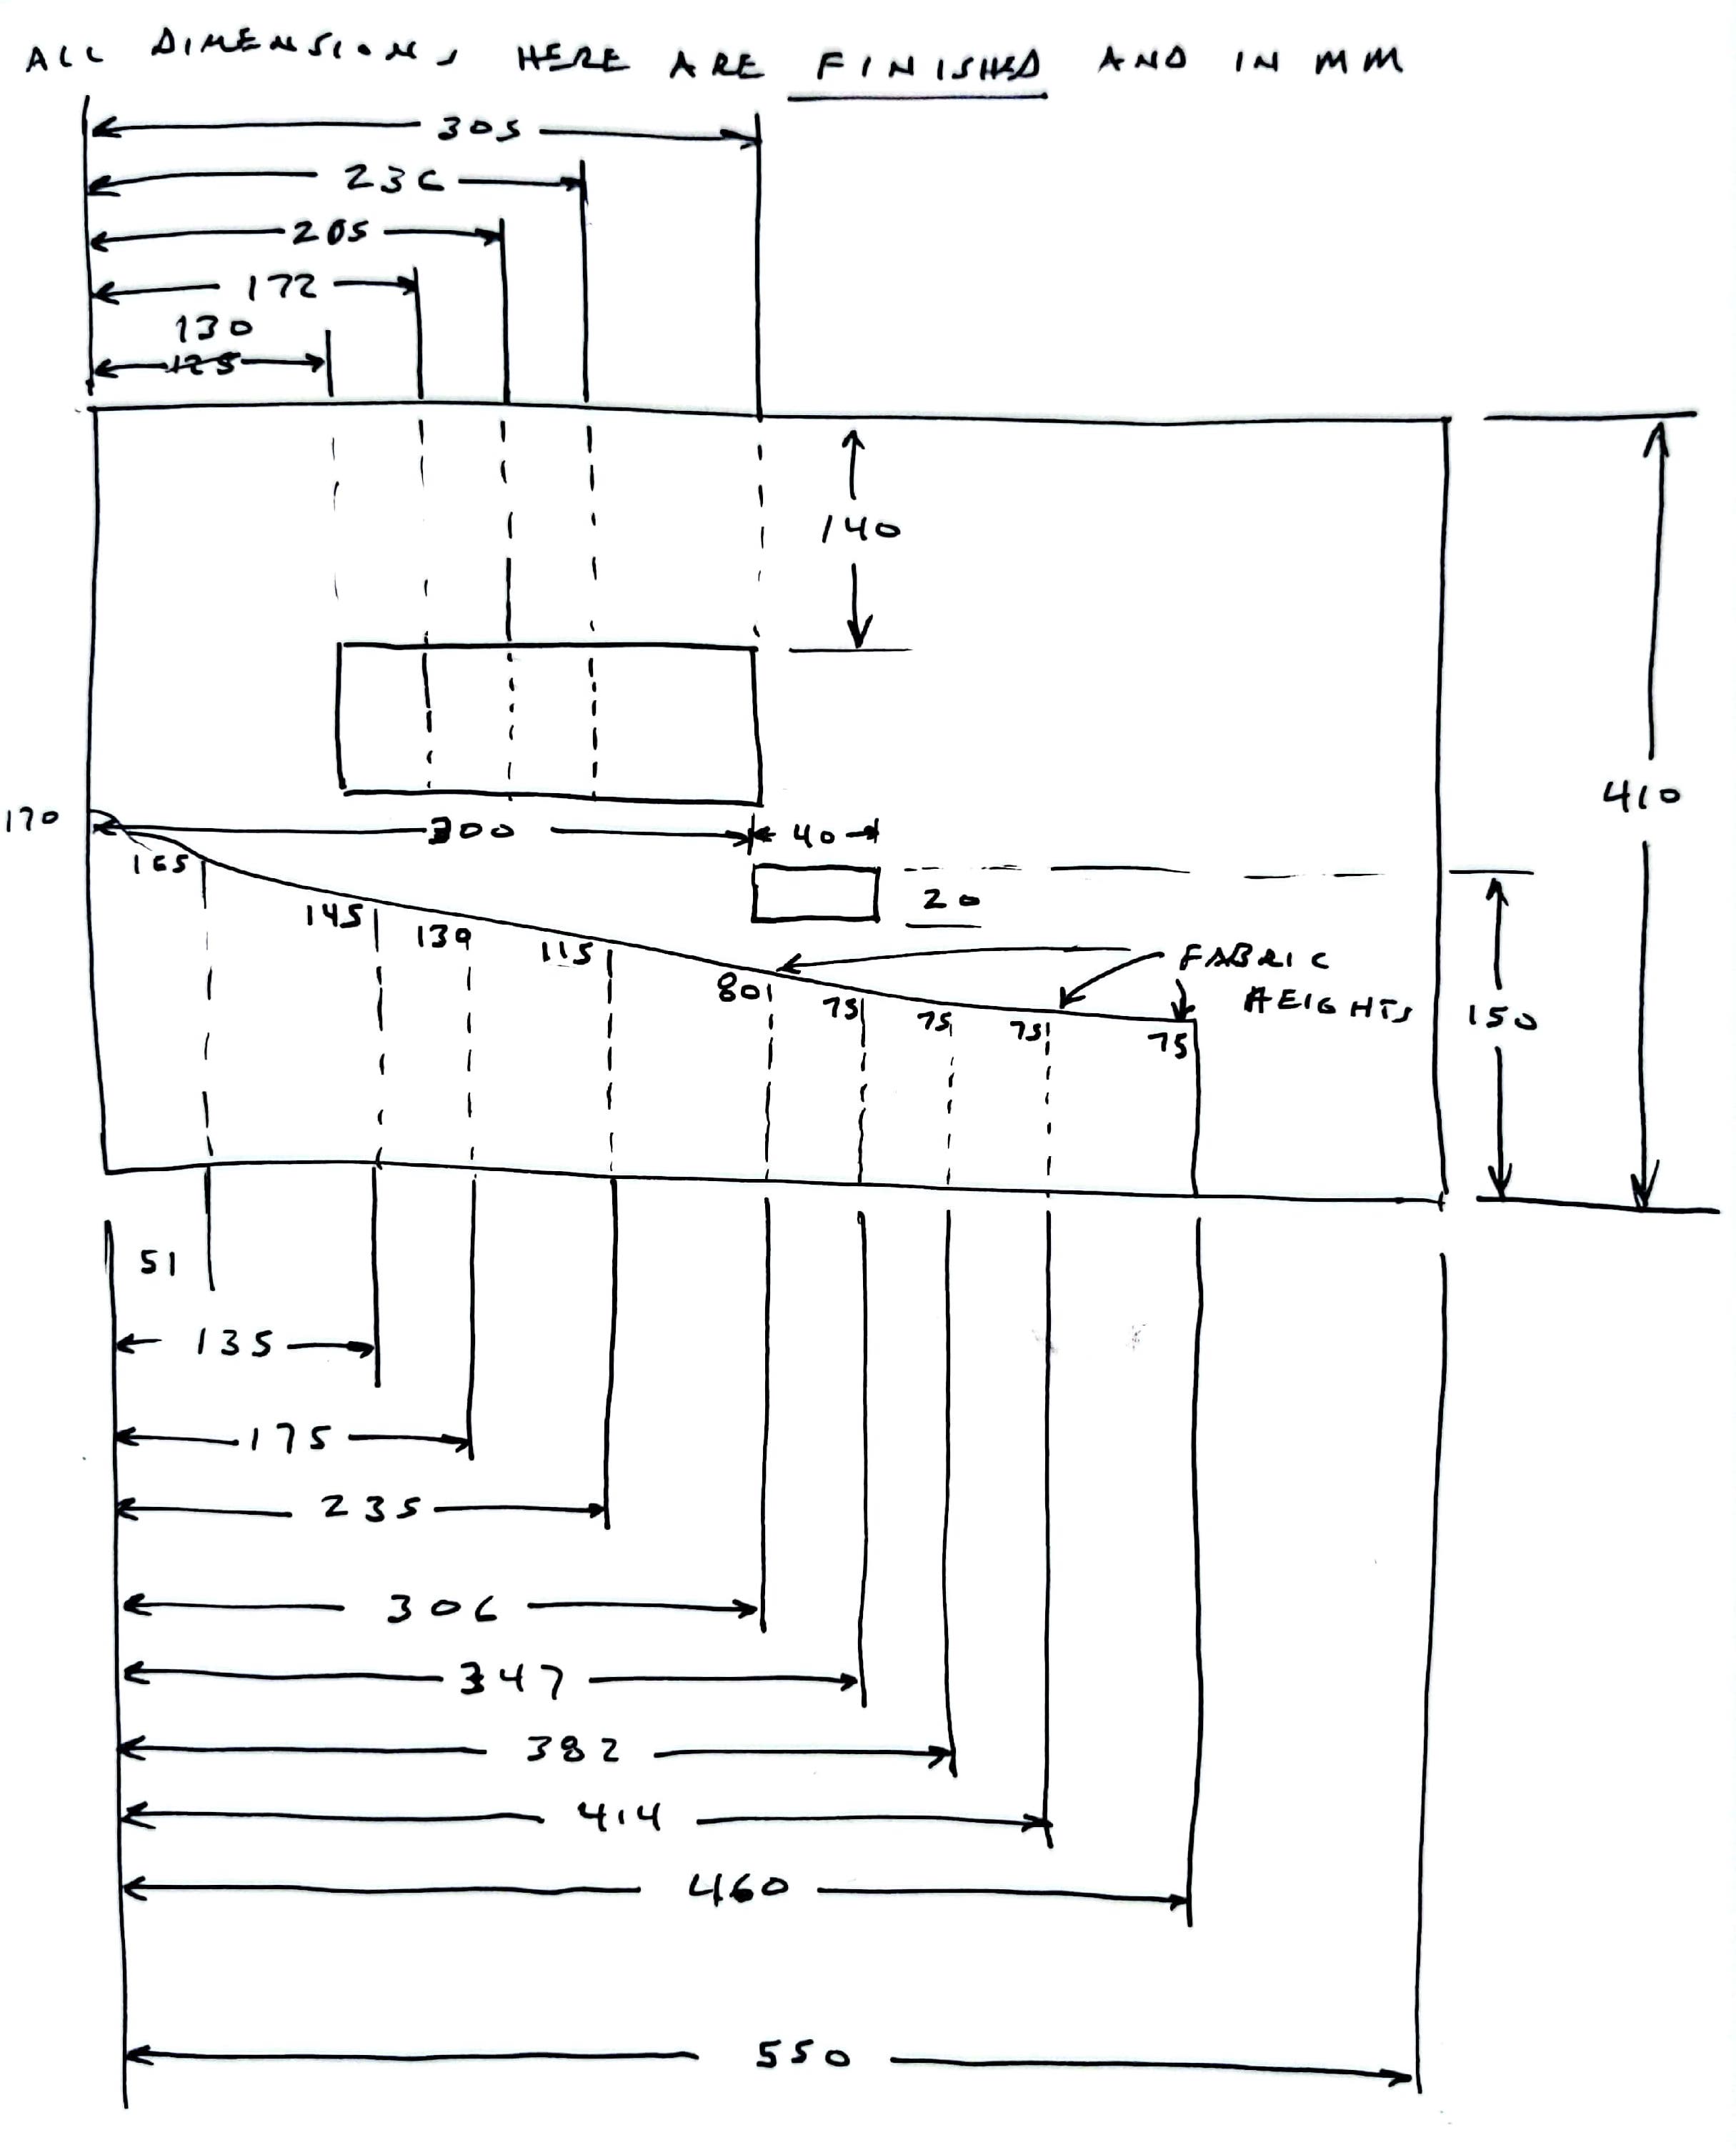 ALL DIMENSIONS HERE ARE FINISHED AND IN MM
305
236
205
172
130
125
140
410
170
300
40
165
20
145
130
115
FABRIC
HEIGHTS
80
75
75
75
75
150
51
135
175
235
306
347
382
414
460
550